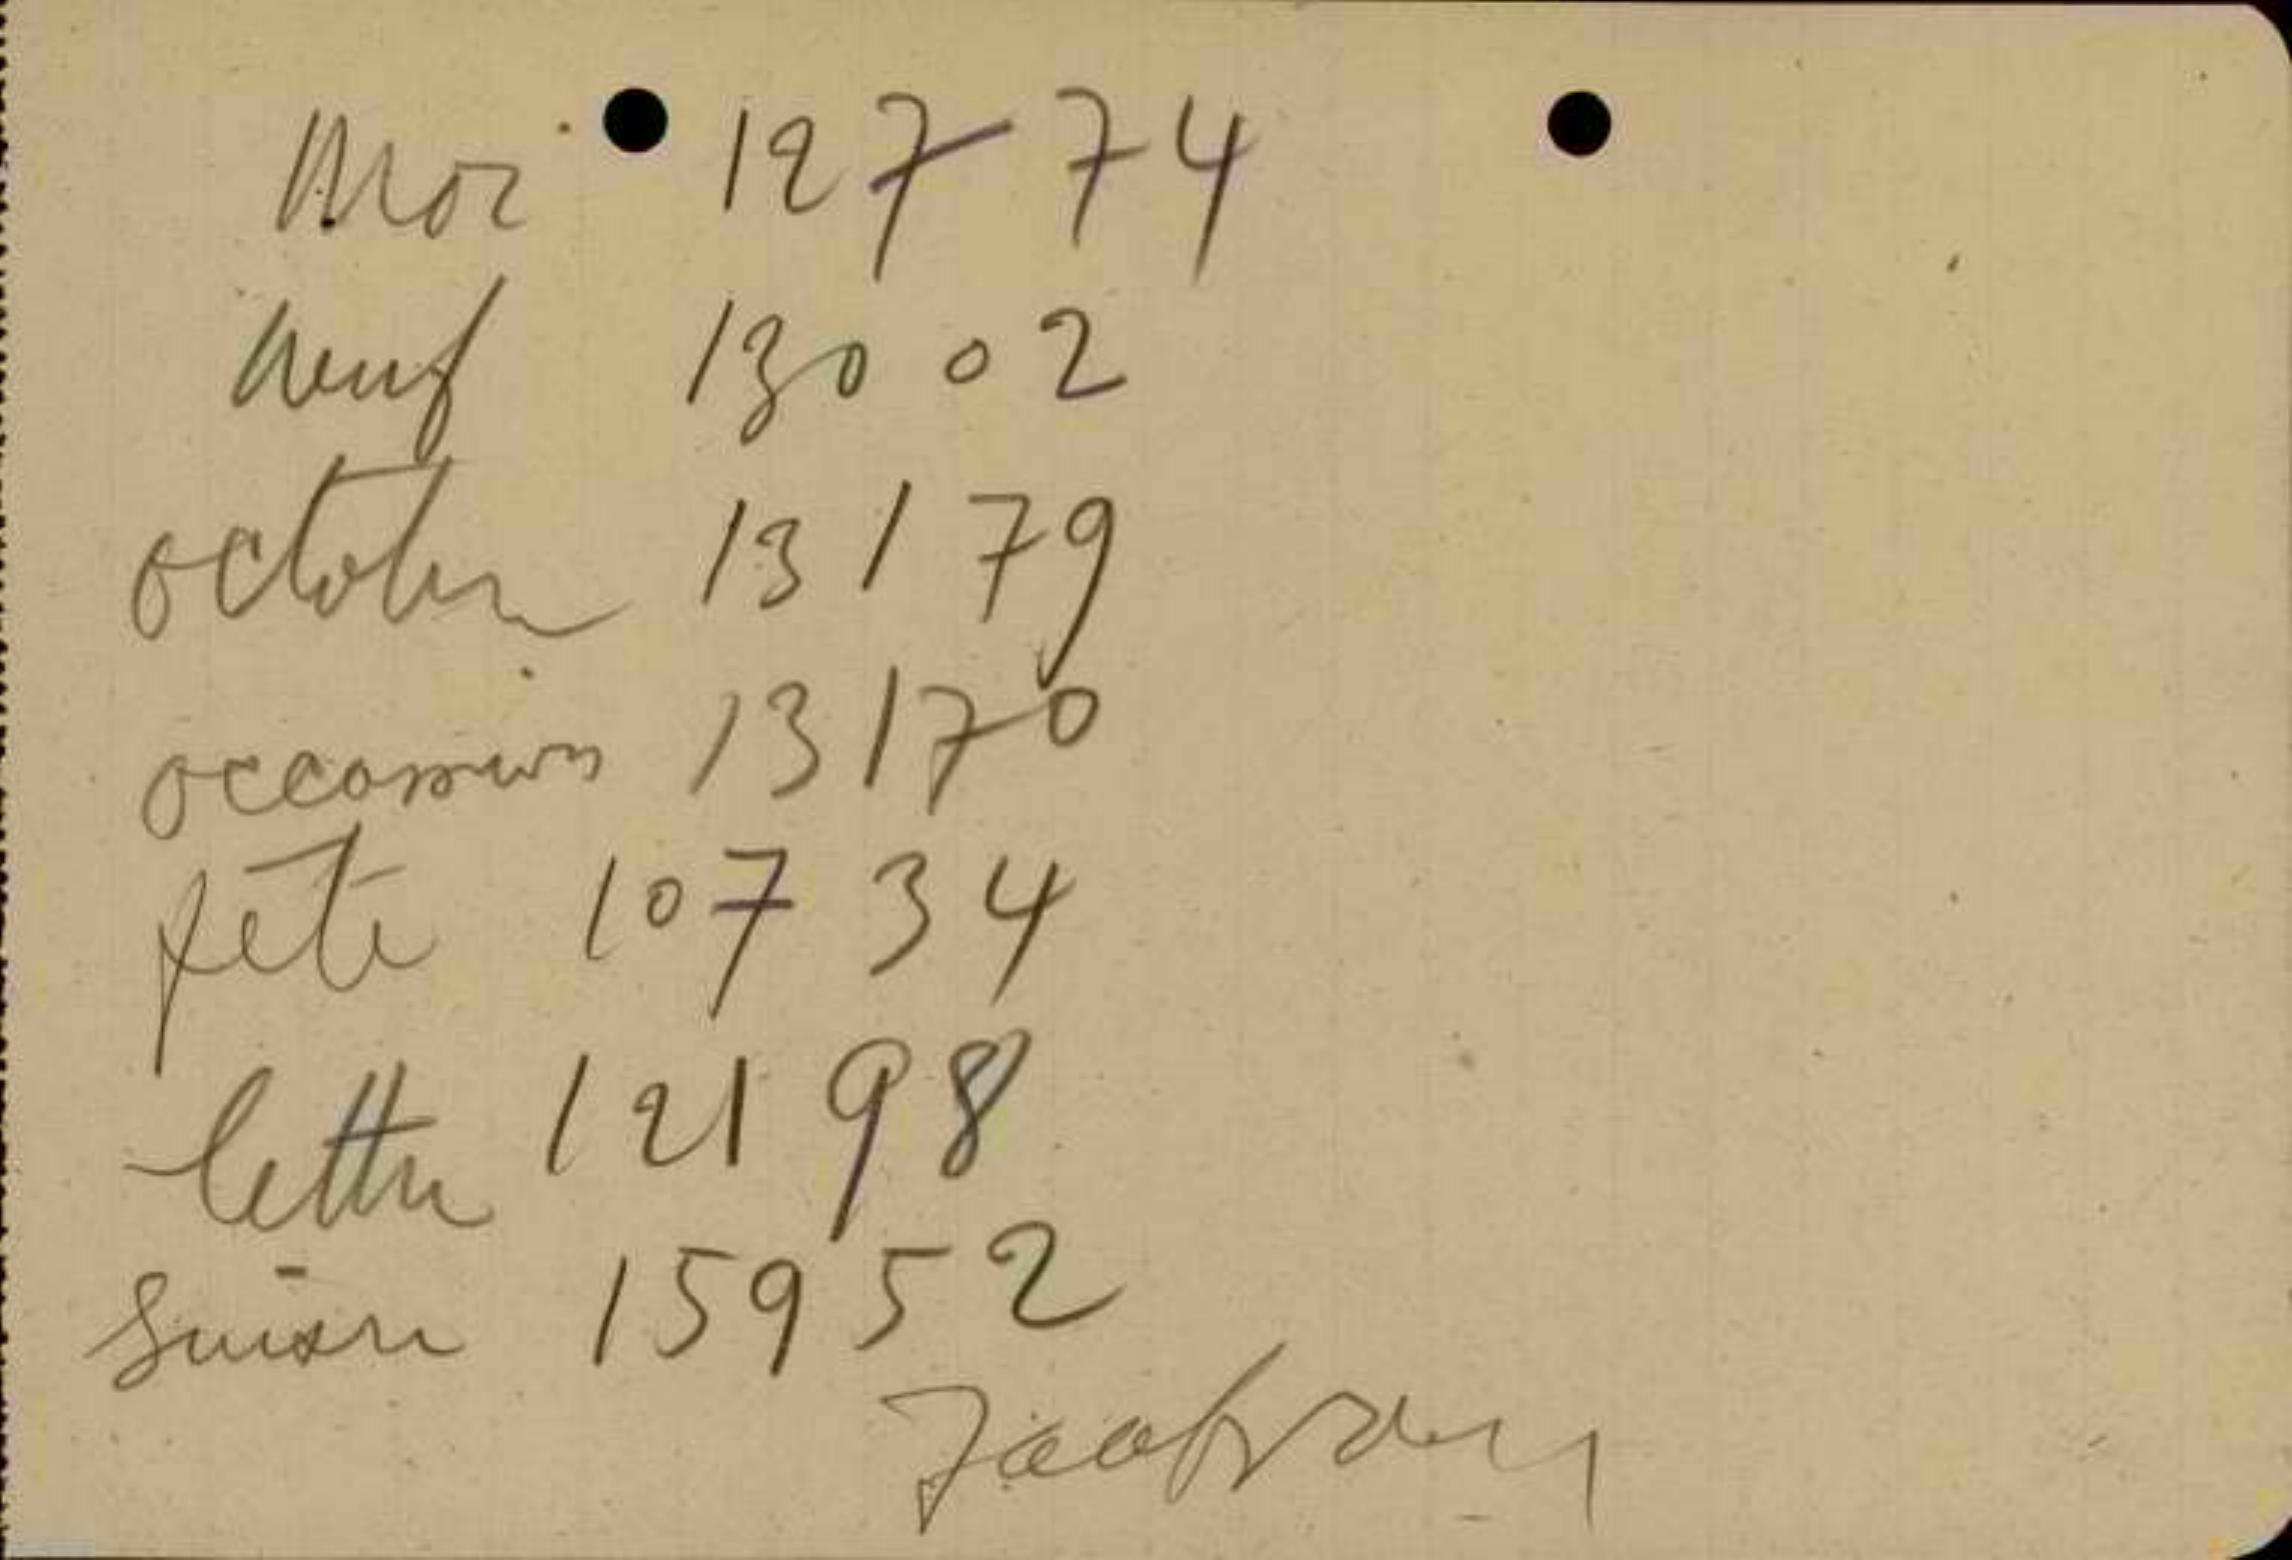 Moi 127 74
neuf 130 02
octobre 13 1 79
occasion 13170
fête 107 34
lettre 121 98
Suisse 159 52